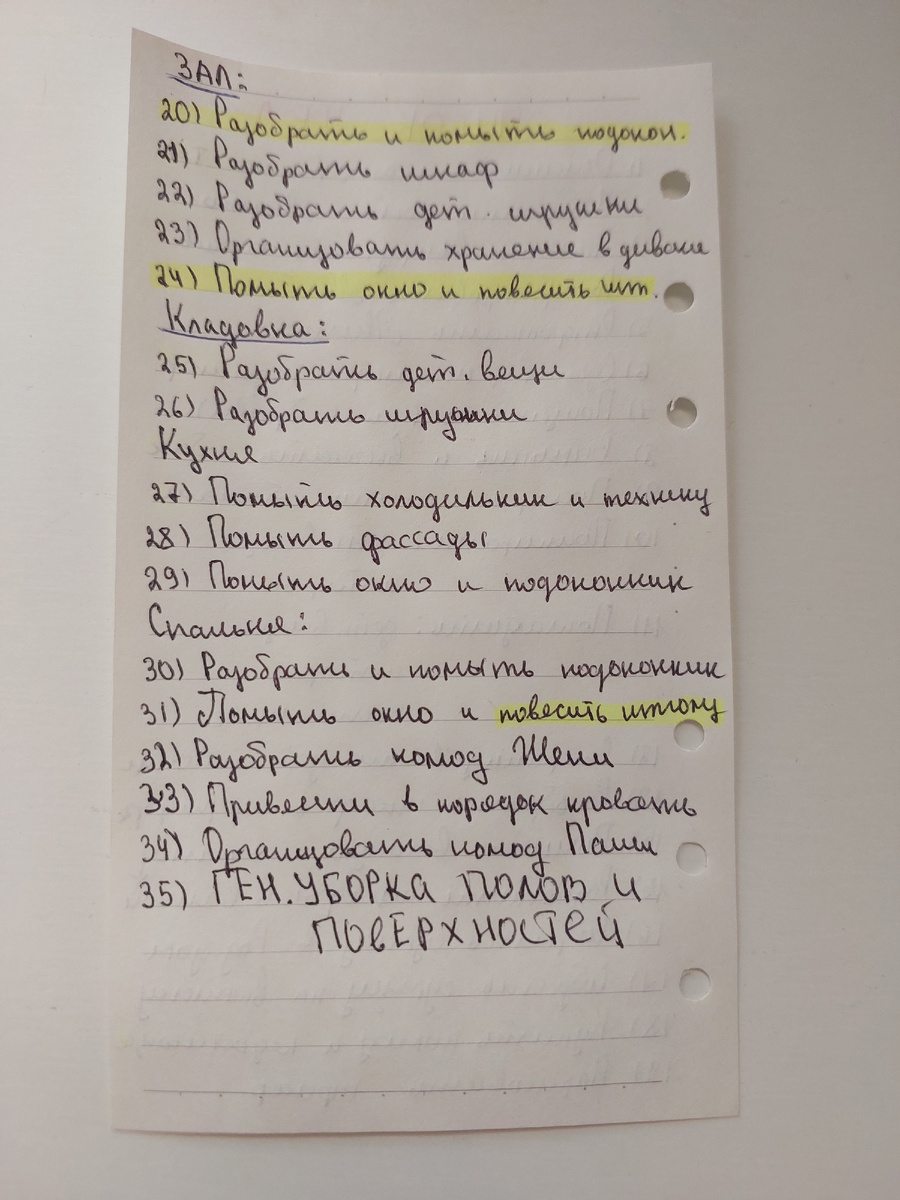 ЗАЛ:
20) Разобрать и помыть подокон.
21) Разобрать шкаф
22) Разобрать дет. игрушки
23) Организовать хранение в диване
24) Помыть окно и повесить шт.
Кладовка:
25) Разобрать дет. вещи
26) Разобрать игрушки
Кухня
27) Помыть холодильник и технику
28) Помыть фассады
29) Помыть окно и подоконник
Спальня:
30) Разобрать и помыть подоконник
31) Помыть окно и повесить штору
32) Разобрать комод Жени
33) Привести в порядок кровать
34) Организовать комод Паши
35) ГЕН. УБОРКА ПОЛОВ И
ПОВЕРХНОСТЕЙ